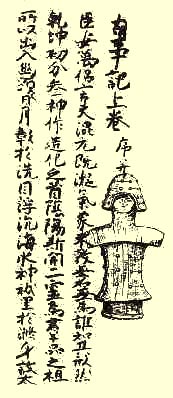 古事記上卷 序并
臣安萬侶言夫混元既凝氣象未效無名無為誰知其形然
乾坤初分參神作造化之首陰陽斯開二靈為群品之祖
所以出入幽顯日月彰於洗目浮沈海水神祇呈於滌身故太